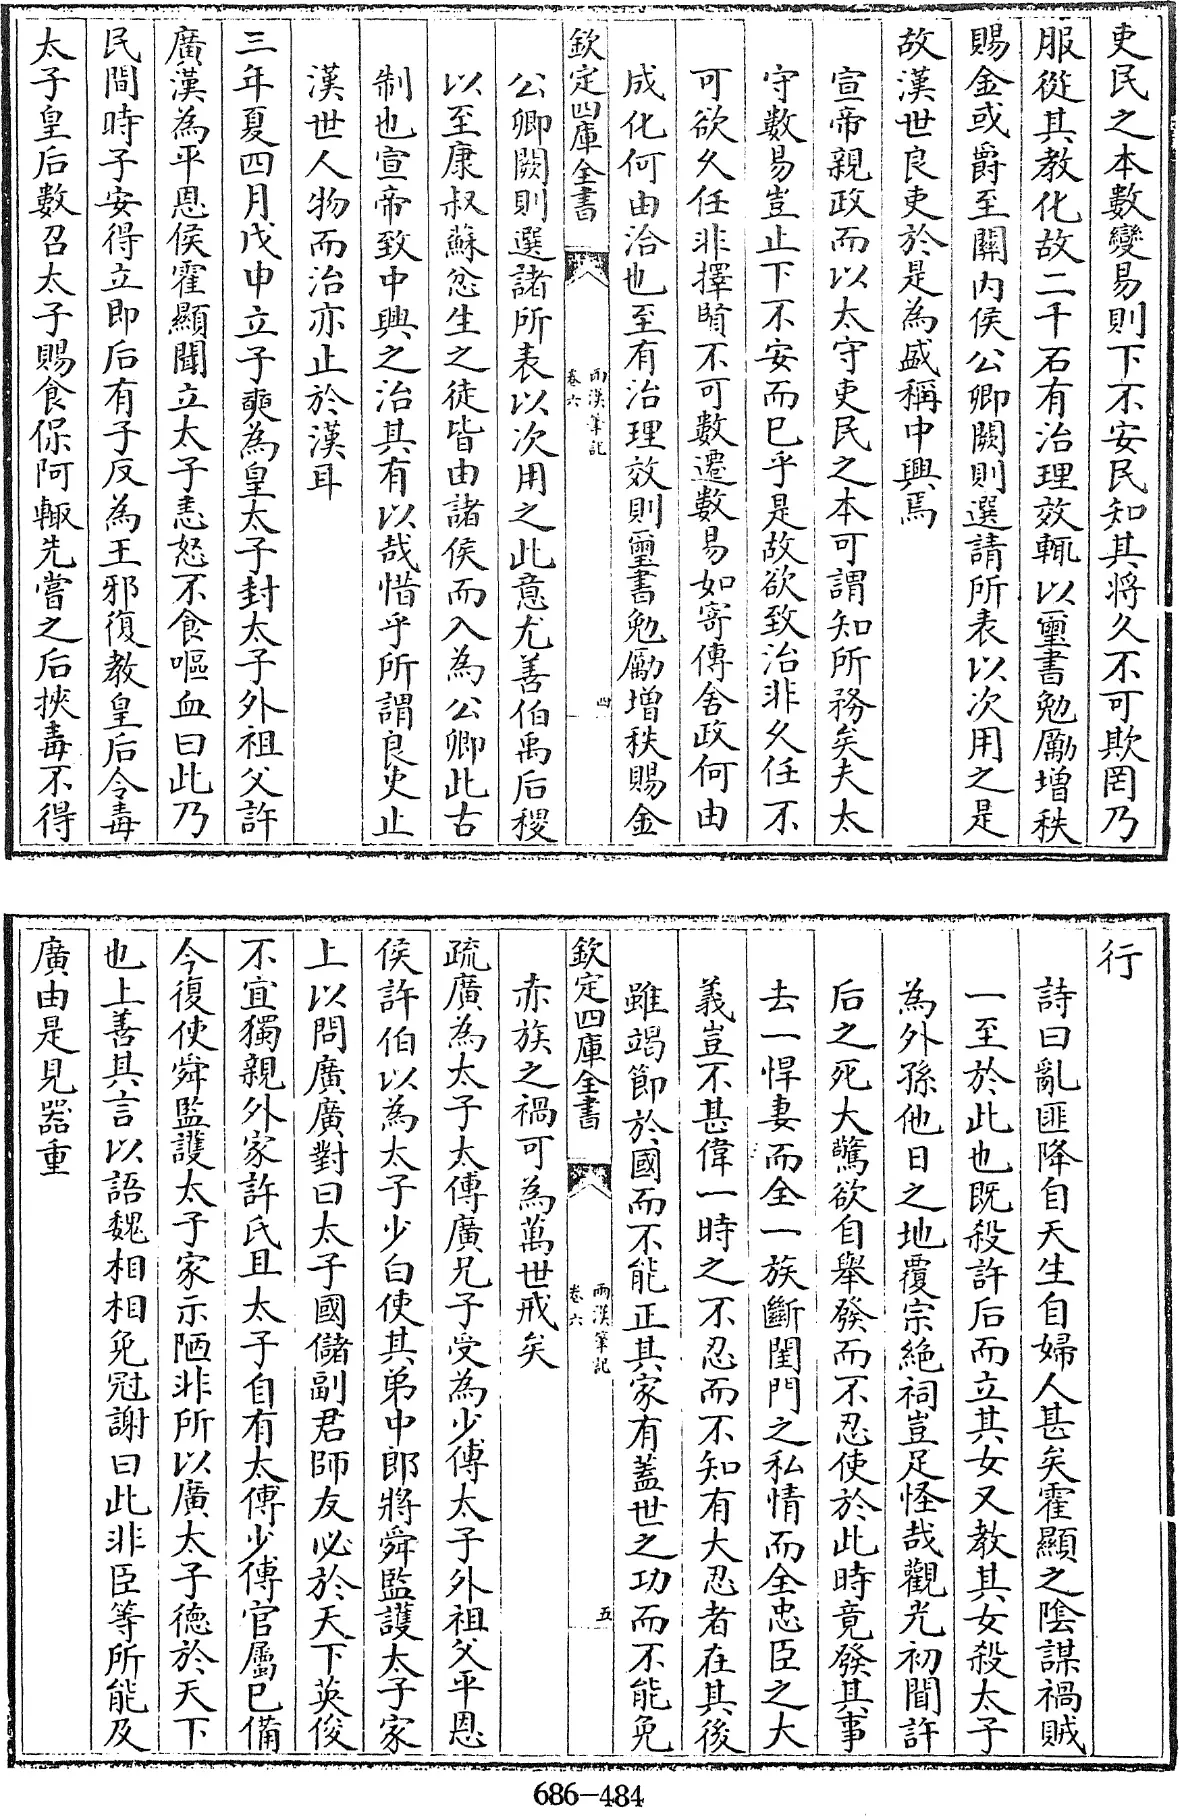 吏民之本數變易則下不安民知其將久不可欺罔乃
服從其教化故二千石有治理效輒以璽書勉勵增秩
賜金或爵至關内侯公卿闕則選請所表以次用之是
故漢世良吏於是為盛稱中興焉
宣帝親政而以太守吏民之本可謂知所務矣夫太
守數易豈止下不安而已乎是故欲致治非久任不
可欲久任非擇賢不可數遷數易如寄傳舍政何由
成化何由洽也至有治理效則璽書勉勵增秩賜金
欽定四庫全書
兩漢筆記
卷六
四
公卿闕則選諸所表以次用之此意尤善伯禹后稷
以至康叔蘇忿生之徒皆由諸侯而入為公卿此古
制也宣帝致中興之治其有以哉惜乎所謂良吏止
漢世人物而治亦止於漢耳
三年夏四月戊申立子奭為皇太子封太子外祖父許
廣漢為平恩侯霍顯聞立太子恚怒不食嘔血曰此乃
民間時子安得立即后有子反為王邪復教皇后令毒
太子皇后數召太子賜食保阿輙先嘗之后挾毒不得
行
詩曰亂匪降自天生自婦人甚矣霍顯之隂謀禍賊
一至於此也既殺許后而立其女又教其女殺太子
為外孫他日之地覆宗絶祠豈足怪哉觀光初聞許
后之死大驚欲自舉發而不忍使於此時竟發其事
去一悍妻而全一族斷閨門之私情而全忠臣之大
義豈不甚偉一時之不忍而不知有大忍者在其後
雖竭節於國而不能正其家有蓋世之功而不能免
欽定四庫全書
兩漢筆記
卷六
五
赤族之禍可為萬世戒矣
疏廣為太子太傅廣兄子受為少傅太子外祖父平恩
侯許伯以為太子少白使其弟中郎將舜監護太子家
上以問廣廣對曰太子國儲副君師友必於天下英俊
不宜獨親外家許氏且太子自有太傅少傅官屬已備
今復使舜監護太子家示陋非所以廣太子德於天下
也上善其言以語魏相相免冠謝曰此非臣等所能及
廣由是見器重
686-484